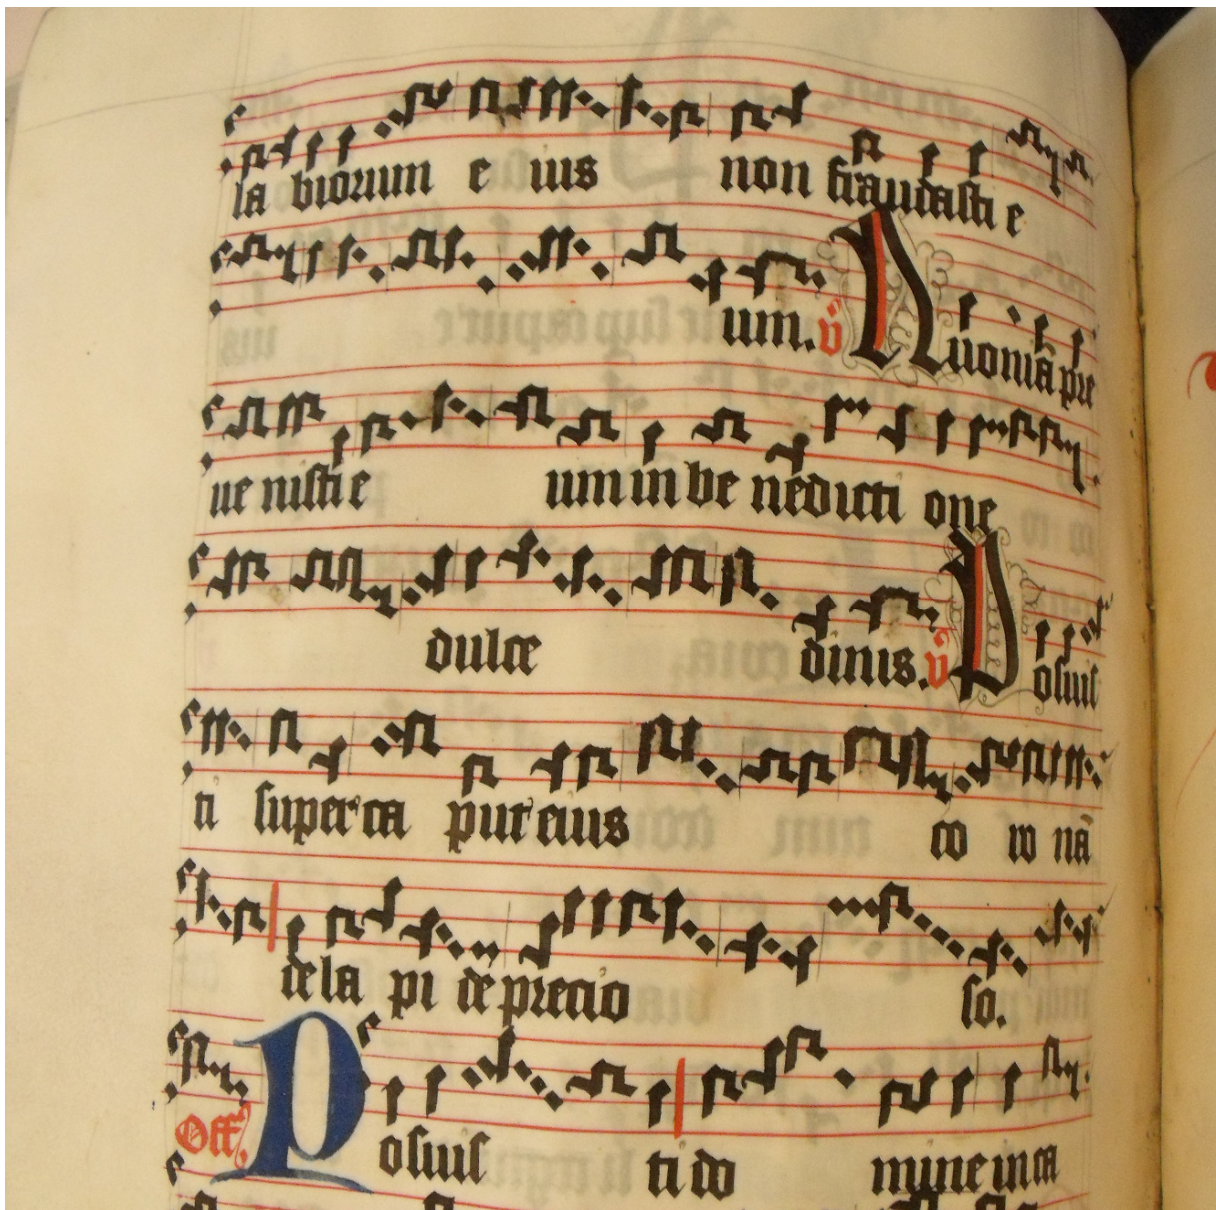 la biorum e ius non fraudasti e
um. v Quoniã pre
ue nisti e um in be nedicti one
dulce dinis. v Posuis
ti super ca put eius co ro nã
de la pi de precio so.
Off Posuis ti do mine in ca